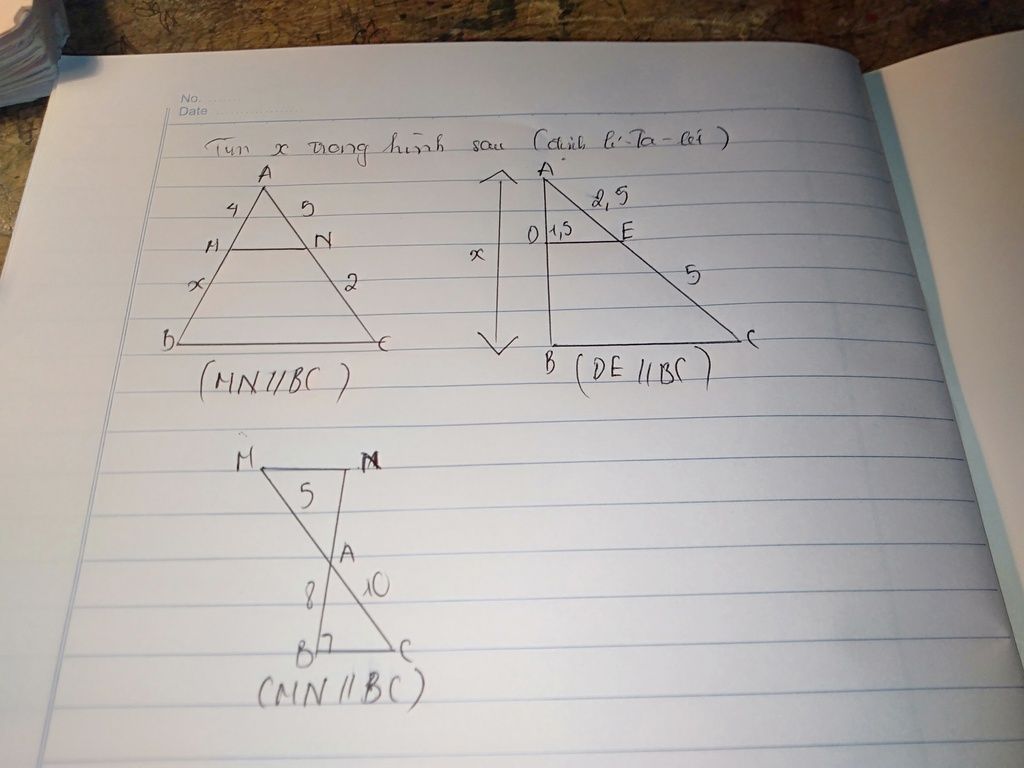 No. ........
Date ....................
Tìm x trong hình sau (định lí Ta-lét)
A
4 5
M N
x 2
B C
(MN//BC)
A
2,5
D 1,5 E
x
5
B C
(DE//BC)
M N
5
A
8 10
B C
(MN//BC)